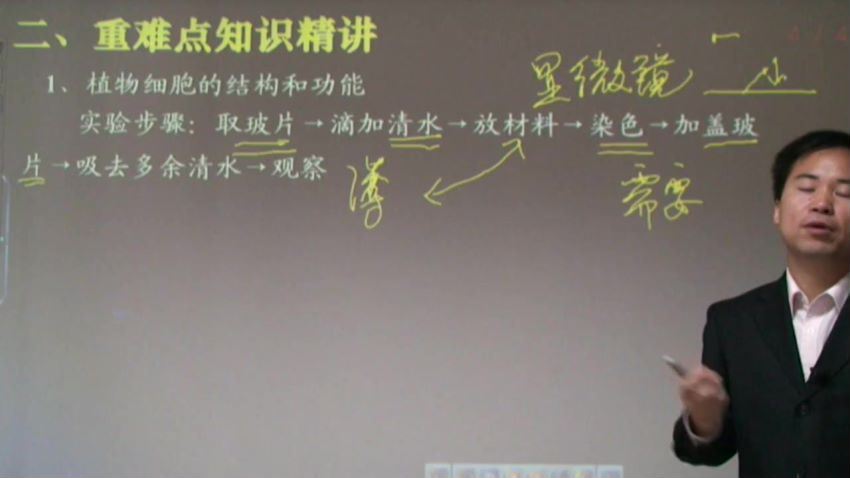 二、重难点知识精讲
显微镜 一 小
1、植物细胞的结构和功能
实验步骤：取玻片→滴加清水→放材料→染色→加盖玻
片→吸去多余清水→观察
薄 需要